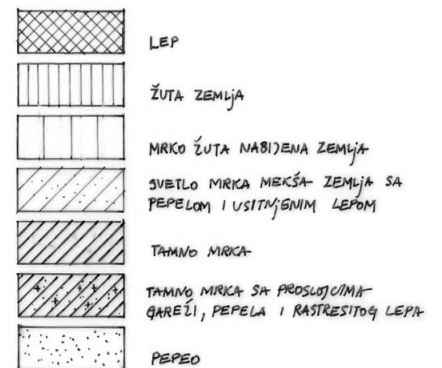 LEP
ŽUTA ZEMLJA
MRKO ŽUTA NABIJENA ZEMLJA
SVETLO MRKA MEKŠA ZEMLJA SA
PEPELOM I USITNJENIM LEPOM
TAMNO MRKA
TAMNO MRKA SA PROSLOJCIMA
GAREŽI, PEPELA I RASTRESITOG LEPA
PEPEO